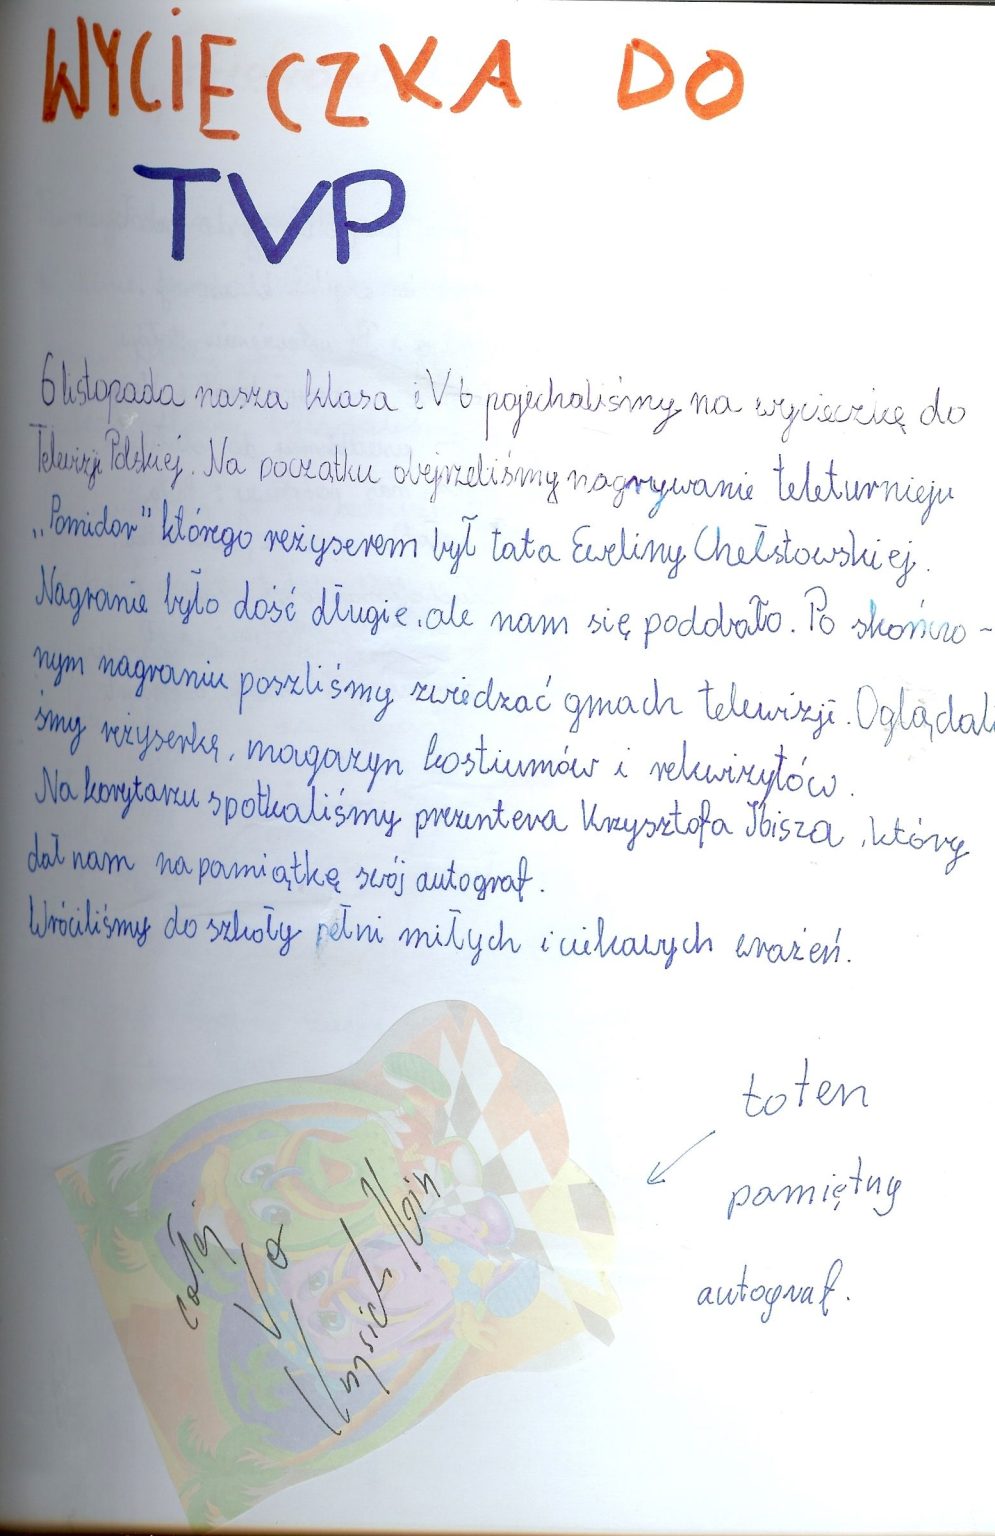 WYCIECZKA DO
TVP
6 listopada nasza klasa i V b pojechaliśmy na wycieczkę do
Telewizji Polskiej. Na początku obejrzeliśmy nagrywanie teleturnieju
„Pomidor" którego reżyserem był tata Eweliny Chełstowskiej.
Nagranie było dość długie, ale nam się podobało. Po skończo-
nym nagraniu poszliśmy zwiedzać gmach telewizji. Oglądali
śmy reżyserkę, magazyn kostiumów i rekwizytów.
Na korytarzu spotkaliśmy prezentera Krzysztofa Ibisza, który
dał nam na pamiątkę swój autograf.
Wróciliśmy do szkoły pełni miłych i ciekawych wrażeń.
to ten
pamiętny
autograf.
całej
V a
Krzysiek Ibisz